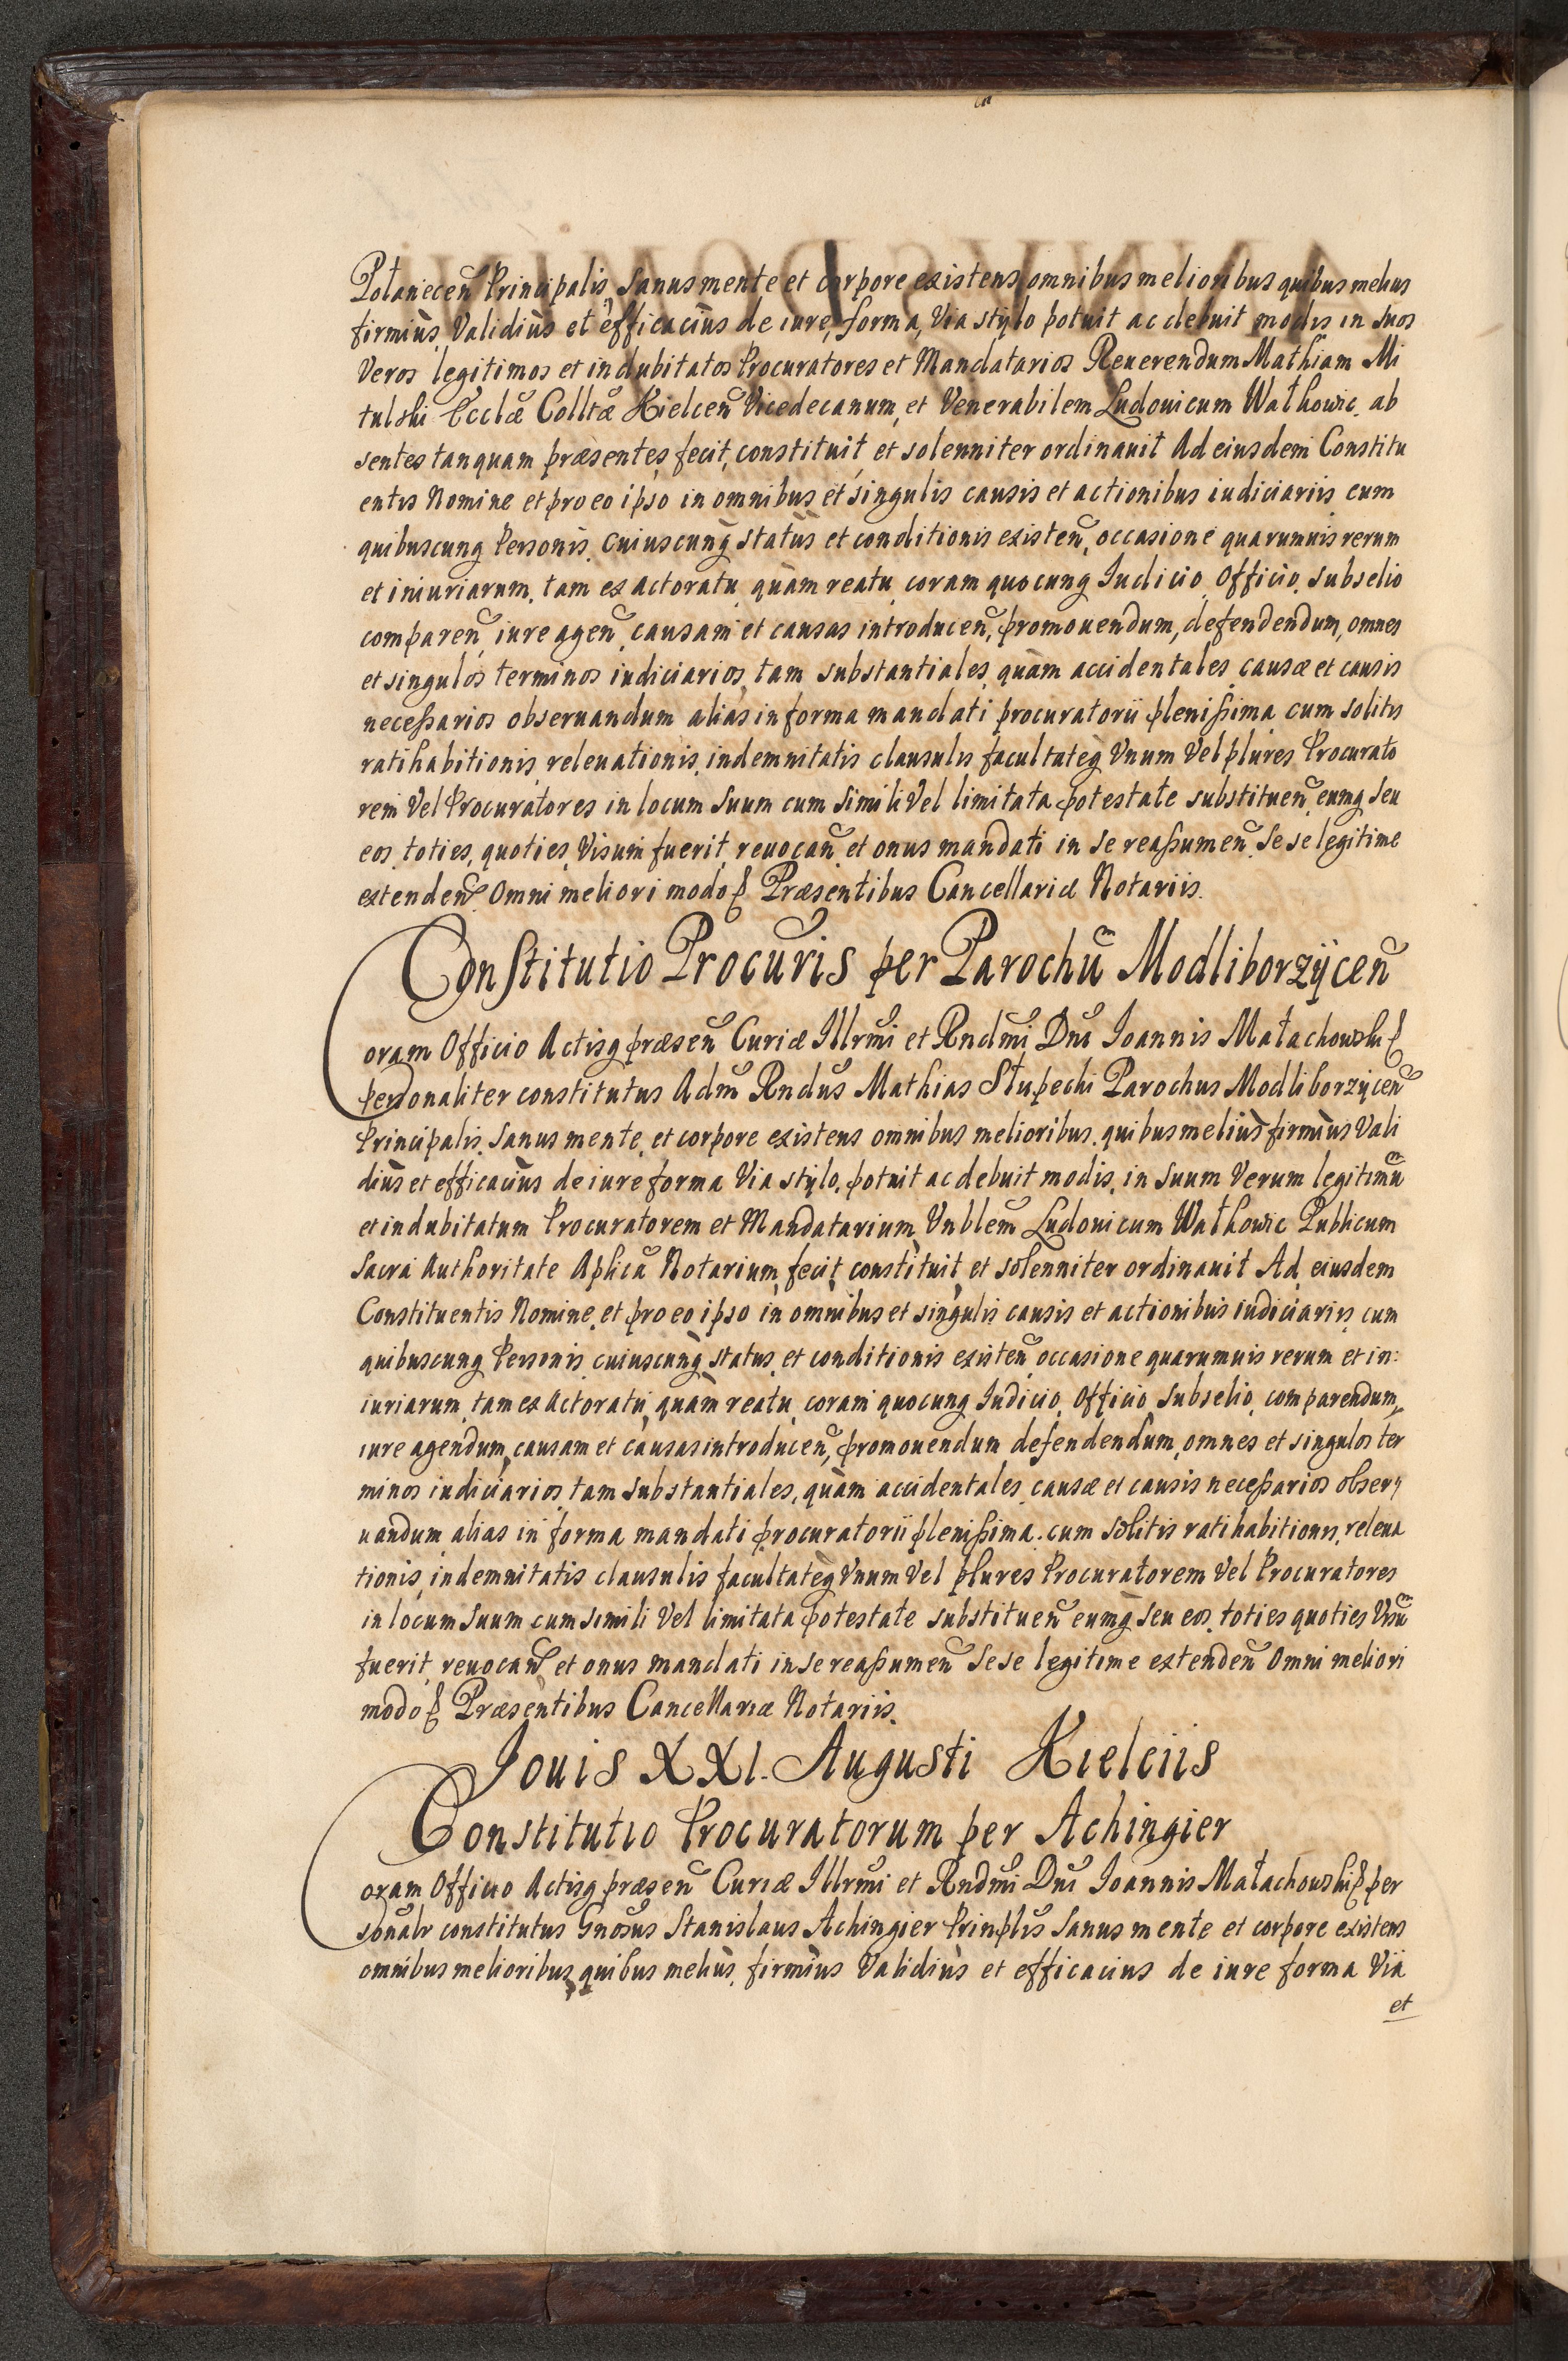 Połanecen̄ Principalis, Sanus mente et corpore existens omnibus melioribus quibus melius
firmiùs, Validiùs et efficaciùs de iure, forma, Via stylo potuit ac debuit modis in Suos
Veros legitimos et indubitatos Procuratores et Mandatarios Reuerendum Mathiam Mi
tulski Eccłæ Colltæ Kielcen̄ Vicedecanum, et Venerabilem Ludouicum Wałkowic. ab
sentes tanquam præsentes, fecit, constituit et solenniter ordinauit Ad eiusdem Constitu
entis Nomine et pro eo ipso in omnibus et singulis causis et actionibus iudiciariis cum
quibuscunq Personis. cuiuscunq̀ statûs et conditionis existen̄, occasione quarumuis rerum
et iniuriarum, tam ex actoratu quàm reatu, coram quocunq Iudicio, Officio, subselio
comparen̄, iure agen̄, causam et causas introducen̄, promouendum, defendendum, omnes
et singulos terminos iudiciarios, tam substantiales, quàm accidentales causæ et causis
necessarios obseruandum alias in forma mandati procuratorii plenissima cum solitis
ratihabitionis, releuationis, indemnitatis clausulis facultateq̀ Vnum Vel plures Procurato
rem Vel Procuratores in locum Suum cum Simili Vel limitata potestate substituen̄ eumq seu
eos, toties, quoties Visum fuerit, reuocan̄ et onus mandati in se reassumen̄. Se se legitime
extenden̄. Omni meliori modo ꝭ Præsentibus Cancellariæ Notariis.
Constitutio Procuris per Parochū Modliborzÿcen̄
Coram Officio Actisq præsen̄ Curiæ Illrmi et Rndmi Dni Ioannis Małachowski ꝭ
personaliter constitutus Adm̄ Rndus Mathias Słupecki Parochus Modliborzÿcen̄
Principalis. Sanus mente, et corpore existens omnibus melioribus, quibus meliùs firmiùs Vali
diùs et efficaciùs de iure forma Via stylo, potuit ac debuit modis, in Suum Verum legitimū
et indubitatum Procuratorem et Mandatarium, Vnblem Ludouicum Wałkowic Publicum
Sacra Authoritate Aplica Notarium, fecit, constituit, et solenniter ordinauit Ad eiusdem
Constituentis Nomine, et pro eo ipso in omnibus et singulis causis et actionibus iudiciariis, cum
quibuscunq Personis, cuiuscunq̀ status et conditionis existen̄ occasione quarumuis rerum et in:
iuriarum, tam ex Actoratu, quàm reatu, coram quocunq Iudicio, Officio, Subselio, comparendum,
iure agendum, causam et causas introducen̄, promouendum defendendum, omnes et singulos ter
minos iudiciarios tam Substantiales, quàm accidentales causæ et causis necessarios obser
uandum alias in forma mandati procuratorii plenissima. cum Solitis ratihabitionis, releua
tionis indemnitatis clausulis facultateq̀ Vnum Vel plures Procuratorem Vel Procuratores
in locum Suum cum simili Vel limitata potestate substituen̄ eumq̀ seu eos, toties quoties Visū
fuerit, reuocan̄ et onus mandati in se reassumen̄ Se se legitime extenden̄ Omni meliori
modo ꝭ Præsentibus Cancellariæ Notariis.
Iouis XXI. Augusti Kielciis
Constitutio Procuratorum per Achingier
Coram Officio Actisq præsen̄ Curiæ Illrmi et Rndmi Dni Ioannis Małachowski ꝭ per
sonalr constitutus Gnosus Stanislaus Achingier Prinplis Sanus mente et corpore existens
omnibus melioribus, quibus meliùs, firmiùs Validiùs et efficacius de iure forma Via
et